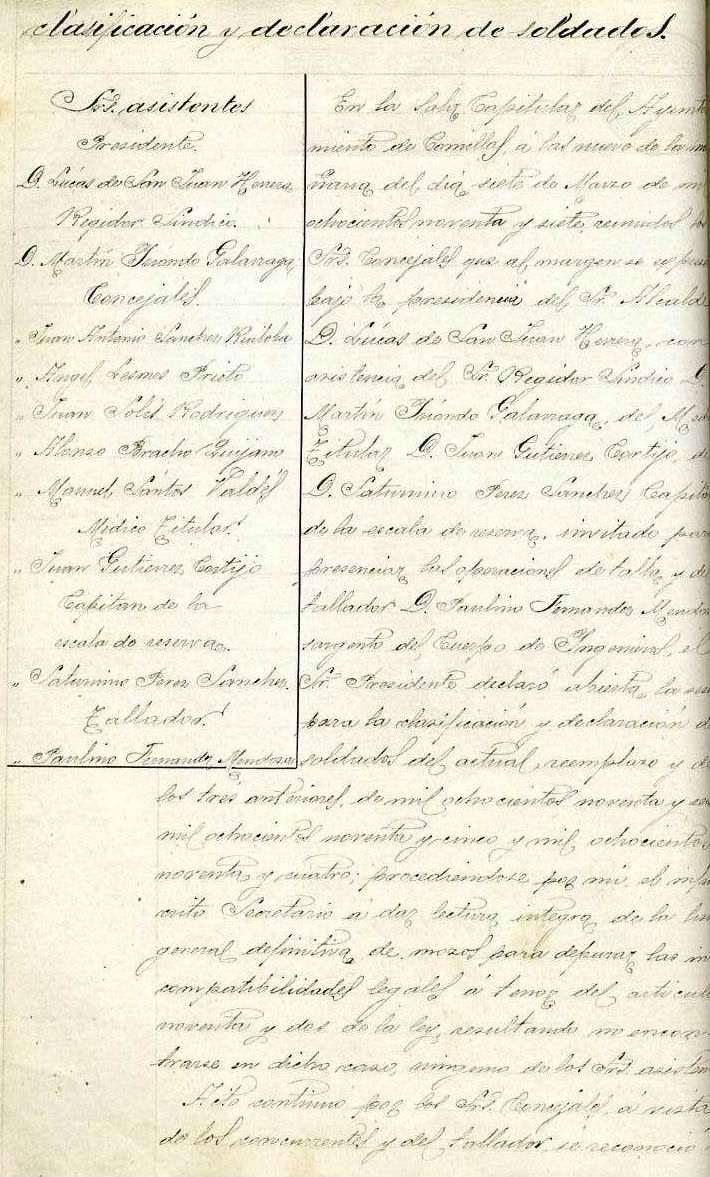 clasificación y declaración de soldados.
Srs. asistentes
Presidente.
D. Lúcas de San Juan Herrera
Regidor Síndico.
D. Martín Iñóndo Galarraga
Concejales.
" Juan Antonio Sanchez Ruiloba
" Angel Lesmes Prieto
" Juan Solis Rodriguez
" Alonso Bracho Quijano
" Manuel Santos Valdés
Médico Titular.
" Juan Gutierrez Cortijo
Capitan de la
escala de reserva.
" Saturnino Perez Sanchez.
Tallador.
" Paulino Fernandez Mendoza
En la Sala Capitular del Ayunta
miento de Comillas, á las nueve de la ma
ñana del día siete de Marzo de mil
ochocientos noventa y siete, reunidos los
Srs. Concejales que al margen se expresa
bajo la presidencia del Sr. Alcalde
D. Lúcas de San Juan Herrera, con
asistencia del Sr. Regidor Síndico D.
Martín Iñóndo Galarraga, del Med
Titular D. Juan Gutierrez Cortijo, de
D. Saturnino Perez Sanchez Capitan
de la escala de reserva, invitado para
presenciar las operaciones de talla, y del
tallador D. Paulino Fernandez Mendoza
sargento del Cuerpo de Ingenieros, el
Sr. Presidente declaró abierta la ses
para la clasificación y declaración d
soldados del actual reemplazo y de
los tres anteriores, de mil ochocientos noventa y seis
mil ochocientos noventa y cinco y mil ochocientos
noventa y cuatro; procediendose por mí, el infras
crito Secretario á dar lectura integra de la lis
general definitiva de mozos para depurar las in
compatibilidades legales á tenor del artículo
noventa y dos de la ley, resultando no encon
trarse en dicho caso, ninguno de los Srs. asisten
Acto continuo por los Srs. Concejales, á vista
de los concurrentes y del tallador, se reconoció